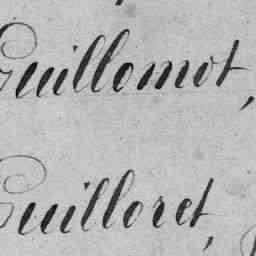 Guillomot,
Guilloret,